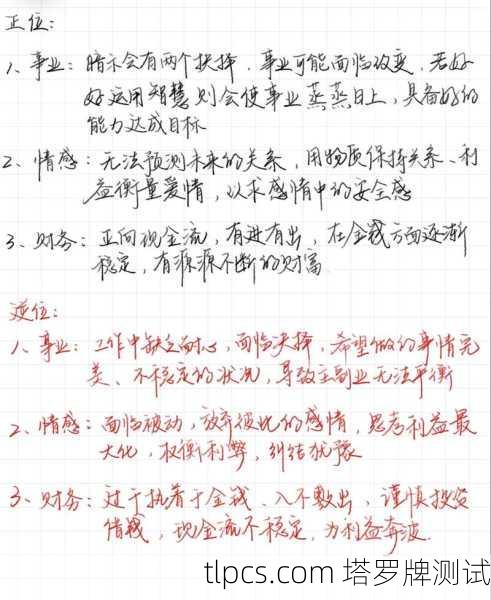 正位:
1、事业: 暗示会有两个抉择, 事业可能面临改变, 若好
好运用智慧则会使事业蒸蒸日上, 具备好的
能力达成目标
2、情感: 无法预测未来的关系, 用物质保持关系、利
益衡量爱情, 以求感情中的安全感
3、财务: 正向现金流, 有进有出, 在金钱方面逐渐
稳定, 有源源不断的财富
逆位:
1、事业: 工作中缺乏耐心, 面临决择, 希望做的事情完
美、不稳定的状况, 导致主副业无法平衡
2、情感: 面临被动, 放弃彼此的感情, 思考利益最
大化, 权衡利弊, 纠结犹豫
3、财务: 过于执着于金钱、入不敷出, 谨慎投资
借钱, 现金流不稳定, 为利益奔波.
tlpcs.com 塔罗牌测试